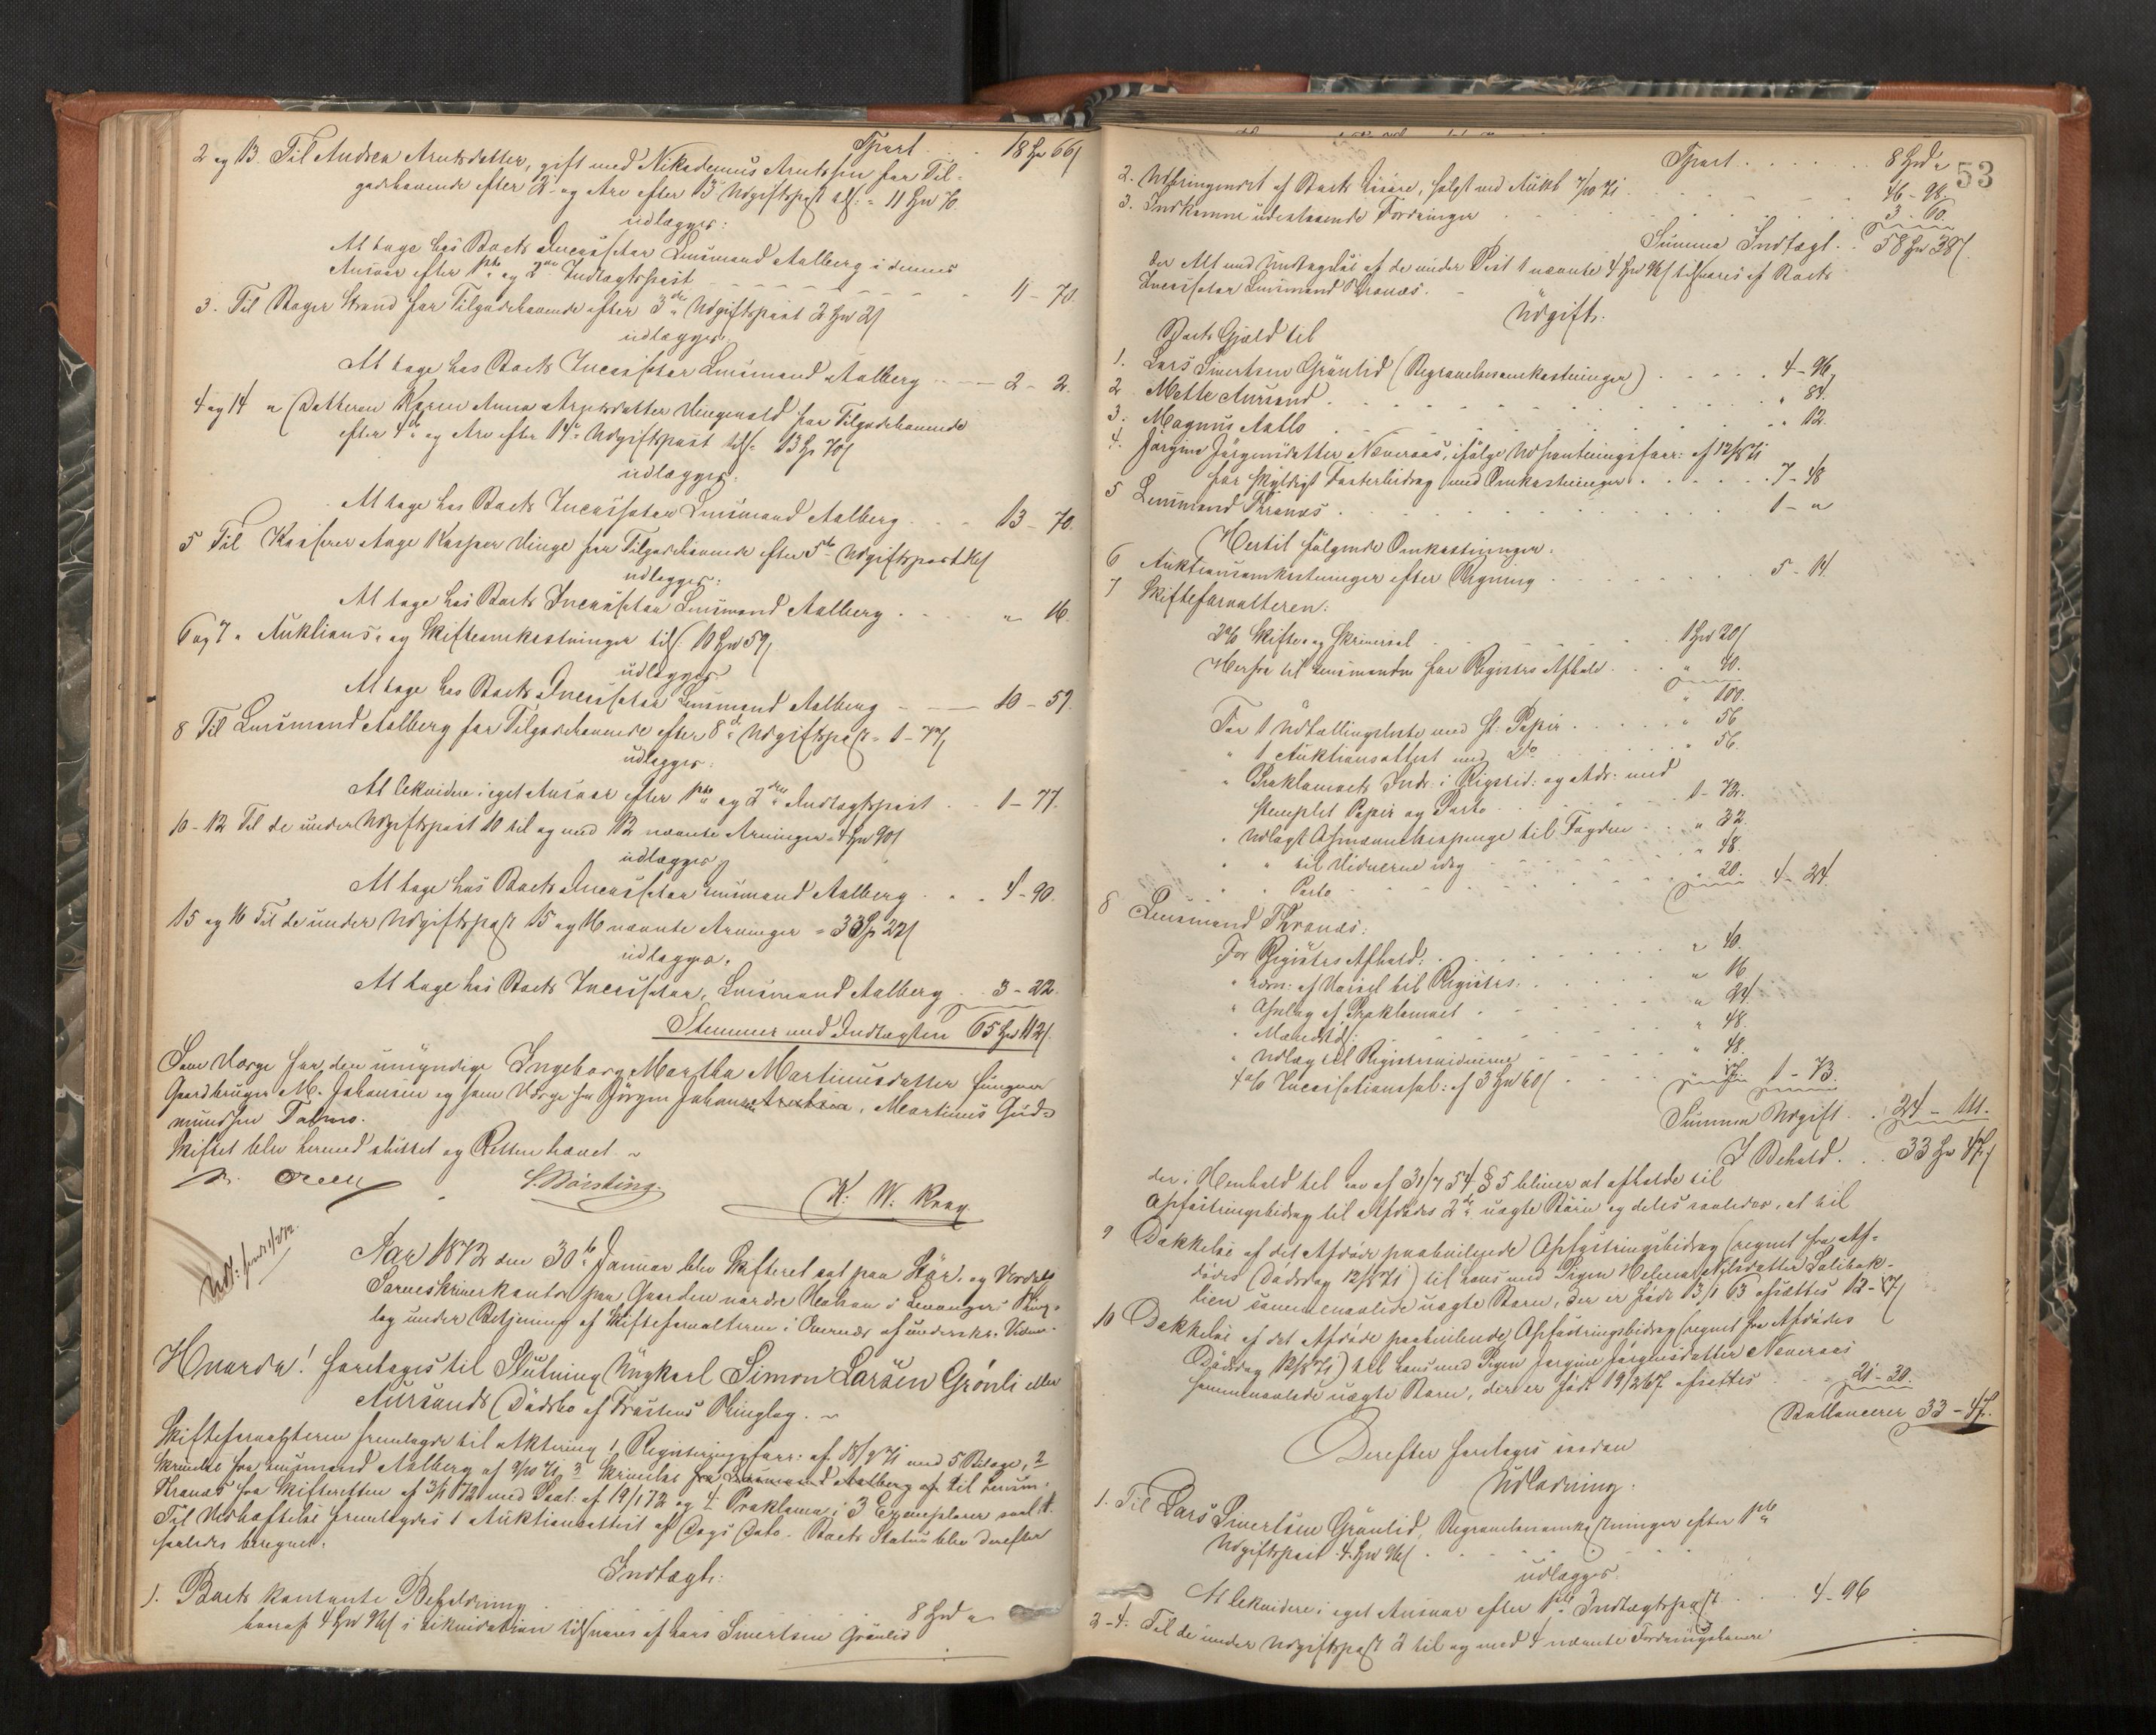 Tpart . . 18 Spd 66 s
2 og 13. Til Andrea Arntsdatter, gift med Nikodemus Arntssen for Til-
godehavende efter 2 og Arv efter 13 Udgiftspost tils: = 11 Spd 70
udlægges:
At tage hos Boets Incassator Lensmand Aalberg i dennes
Ansvar efter 1ste og 2den Indtægtspost 11 - 70.
3. Til Strand for Tilgodehavende efter 3die Udgiftspost 2 Spd 2 s
udlægges:
At tage hos Boets Incassator Lensmand Aalberg 2 - 2.
4 og 14 Datteren Karen Anna Arntsdatter for Tilgodehavende
efter 4de og Arv efter 14de Udgiftspost tils: 13 Sp 70 s
udlægges:
At tage hos Boets Incassator Lensmand Aalberg 13 - 70.
5 Til Kasserer Aage Kasper Vinge for Tilgodehavende efter 5te Udgiftspost
udlægges:
At tage hos Boets Incassator Lensmand Aalberg " 16.
6 og 7. Auktions- og Skifteomkostninger tils: 10 Spd 59 s
udlægges
At tage hos Boets Incassator Lensmand Aalberg 10 - 59.
8 Til Lensmand Aalberg for Tilgodehavende efter 8de Udgiftspost = 1 - 77 s
udlægges:
At likvidere i eget Ansvar efter 1ste og 2den Indtægtspost 1 - 77.
10 - 12 Til de under Udgiftspost 10 til og med 12 nævnte Arvinger = 4 Spd 90 s
udlægges
At tage hos Boets Incassator Lensmand Aalberg 4 - 90.
15 og 16 Til de under Udgiftspost 15 og 16 nævnte Arvinger = 3 Sp 22 s
udlægges.
At tage hos Boets Incassator, Lensmand Aalberg 3 - 22.
Stemmer med Indtægten 65 Spd 112 s.
Som Værge for den umyndige Ingeborg Martha Martinusdatter fungerer
Gaardbruger M. Johansen og som Værge for Jørgen Johan, Martinus Gud-
mundsen
Skiftet blev hermed sluttet og Retten hævet.
K. W. Krag.
Aar 1872 den 30te Januar blev Skifteret sat paa Stør- og Værdals
Sorenskriverkontor paa Gaarden nordre i Levanger Thing-
lag under Betjening af Skifteforvalteren i Overvær af underskr. Vidner.
Hvorda! foretages til Slutning Ungkarl Simon Larsen Grønli eller
Aursunds Dødsbo af Frostens Thinglag.
Skifteforvalteren fremlagde til Aktering 1, Registreringsforr: af 18/9 71 med 5 Bilage, 2
Skrivelse fra Lensmand Aalberg af 9/10 71, 3 Skrivelse fra Lensmand Aalberg af til Lensm:
Thranæs fra Skifteretten af 3/1 72 med Paat: af 19/1 72 og 4 Proklama i 3 Exemplarer
Til Vedhæftelse fremlagdes 1 Auktionsattest af Dags Dato. Boets Status blev derefter
saaledes beregnet.
Indtægt:
1. Boets kontante Beholdning 8 Spd "
hvoraf 4 Spd 96 s i Likvidation tilsvares af Lars Sivertsen Grønlid
53
Tpart . . . . . . 8 Spd "
2. Udbringendet af Boets Løsøre, solgt ved Auktion 7/10 71 46 - 98.
3. Indkomne udestaaende Fordringer 3 - 60.
Summa Indtægt . . 58 Spd 38 s.
der Alt med Undtagelse af de under Post 1 nævnte 4 Spd 96 s tilsvares af Boets
Incassator Lensmand Thranæs.
Udgift:
Boets Gjæld til
1. Lars Sivertsen Grønlid (Begravelsesomkostninger) 4 - 96,
2 Mette Aursund " 84.
3. Magnus Aatlo " 12.
4. Jørgine Jørgensdatter Neveraas, ifølge Udpantningsforr: af 12/8 71
for skyldigt Fosterbidrag med Omkostninger 7 - 48
5 Lensmand Thranæs 1 - "
Hertil følgende Omkostninger.
6 Auktionsomkostninger efter Regning 5 - 14.
7 Skifteforvalteren:
2% Skifte- og Skriversal 1 Spd 20 s
Herfra til Lensmanden for Registrs Afhold " 40.
" 100.
For 1 Udtællingsliste med st. Papir " 56
" 1 Auktionsattest med Do " 56.
" Proklamaets Indr: i Rigstid: og Adr: med
stemplet Papir og Porto 1 - 72.
" Udlagt til Fogden " 32
" " til Vidnerne idag " 48.
" " Porto " 20. 4 - 24.
8 Lensmand Thranæs:
For Registrs Afhold: " 40.
" af Varsel til Registr: " 16.
" Opslag af Proklamaet " 24.
" " 48.
" Udlæg til Registrvidnerne " 48.
4% Incassationssal: af 3 Spd 60 s 1 - 73.
Summa Udgift . . 24 - 111.
I Behold . . 33 Spd 47 s
der i Henhold til Lov af 31/7 54 § 5 bliver at afholde til
Opfostringsbidrag til Afdødes 2de uægte Børn og deles saaledes, at til
9 Dækkelse af det Afdøde paahvilende Opfostringsbidrag (regnet fra Af-
dødes Dødsdag 12/8 71) til hans med Pigen Helena Nilsdatter
lien sammenavlede uægte Barn, der er født 13/1 63 afsættes 12 - 17 s
10 Dækkelse af det Afdøde paahvilende Opfostringsbidrag (regnet fra Afdødes
Dødsdag 12/8 71) til hans med Pigen Jørgine Jørgensdatter Neveraas
sammenavlede uægte Barn, der er født 19/2 67 afsættes 21 - 30.
Ballancerer 33 - 47.
Derefter foretages saadan
Udlodning.
1. Til Lars Sivertsen Grønlid, Begravelsesomkostninger efter 1ste
Udgiftspost 4 Spd 96 s
udlægges
At likvidere i eget Ansvar efter 1ste Indtægtspost 4 - 96
2 - 4. Til de under Udgiftspost 2 til og med 4 nævnte Fordringshavere